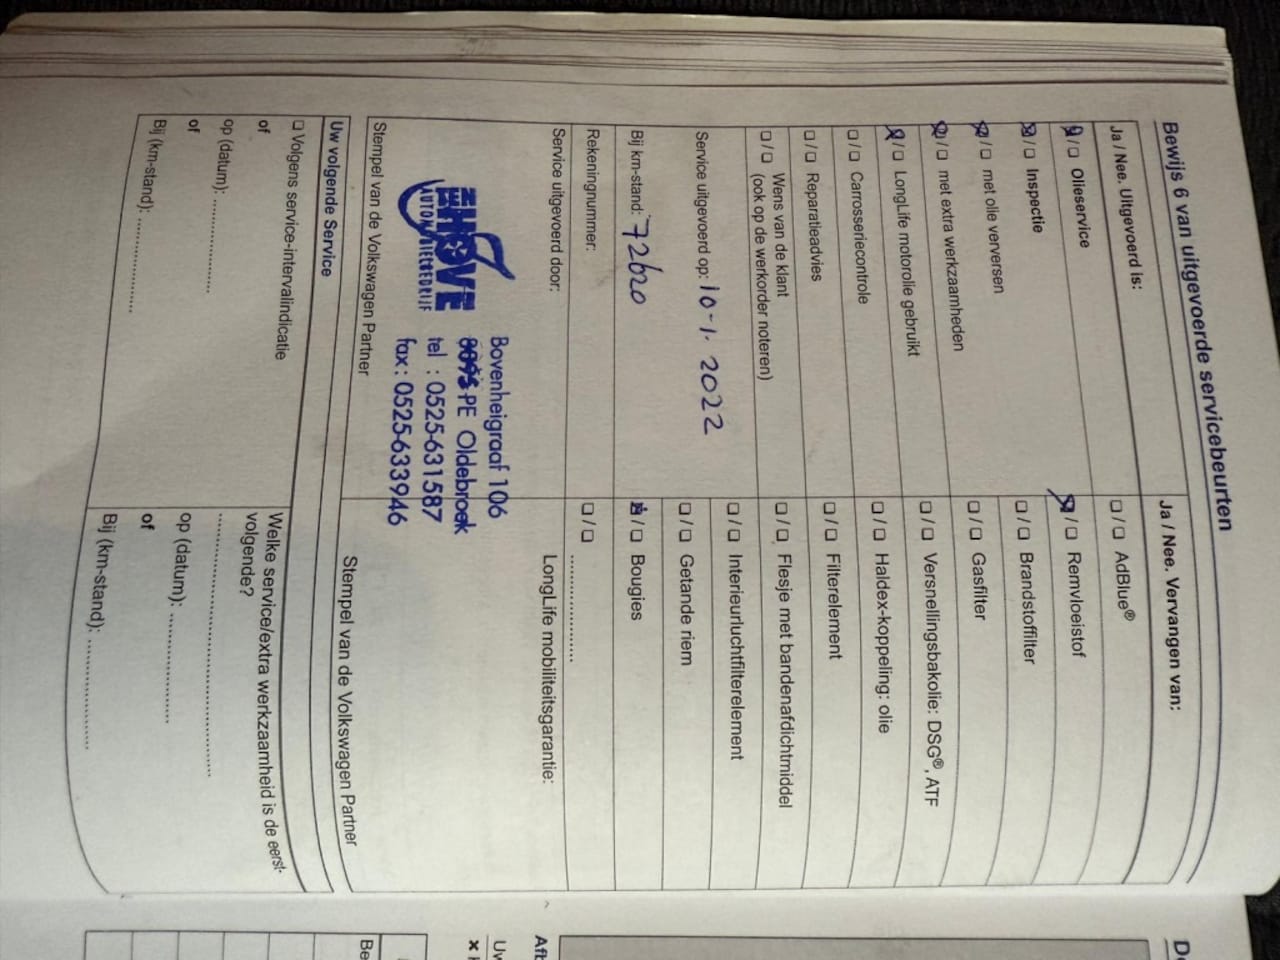 Bewijs 6 van uitgevoerde servicebeurten
Ja / Nee. Uitgevoerd is:
☒ / ☐ Olieservice
☒ / ☐ Inspectie
☒ / ☐ met olie verversen
☒ / ☐ met extra werkzaamheden
☒ / ☐ LongLife motorolie gebruikt
☐ / ☐ Carrosseriecontrole
☐ / ☐ Reparatieadvies
☐ / ☐ Wens van de klant
(ook op de werkorder noteren)
Service uitgevoerd op: 10-1. 2022
Bij km-stand: 72620
Rekeningnummer:
Service uitgevoerd door:
EHOVE
Bovenheigraaf 106
8095 PE Oldebroek
tel : 0525-631587
fax : 0525-633946
Stempel van de Volkswagen Partner
Ja / Nee. Vervangen van:
☐ / ☐ AdBlue®
☒ / ☐ Remvloeistof
☐ / ☐ Brandstoffilter
☐ / ☐ Gasfilter
☐ / ☐ Versnellingsbakolie: DSG®, ATF
☐ / ☐ Haldex-koppeling: olie
☐ / ☐ Filterelement
☐ / ☐ Flesje met bandenafdichtmiddel
☐ / ☐ Interieurluchtfilterelement
☐ / ☐ Getande riem
☒ / ☐ Bougies
☐ / ☐ ......................
LongLife mobiliteitsgarantie:
Stempel van de Volkswagen Partner
Uw volgende Service
☐ Volgens service-intervalindicatie
of
op (datum): ....................
of
Bij (km-stand): ....................
Welke service/extra werkzaamheid is de eerst-
volgende?
..................................................
op (datum): ....................
of
Bij (km-stand): ....................
Afb
Uw
Be